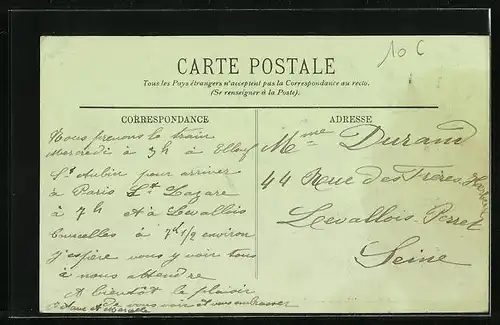 10 C
CARTE POSTALE
Tous les Pays étrangers n'acceptent pas la Correspondance au recto.
(Se renseigner à la Poste).
CORRESPONDANCE
Nous prenons le train
mercredi à 3h à Elbeuf
St Aubin pour arriver
à Paris St Lazare
à 7h et à Levallois
Courcelles à 7h 1/2 environ
j'espère vous y voir tous
à nous attendre
A bientôt le plaisir
de vous voir et vous embrasser
et Marcelle
ADRESSE
Mme Durand
44 Rue des Frères
Levallois-Perret
Seine